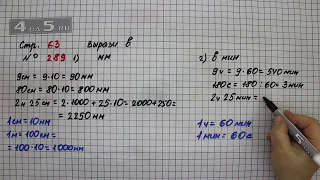 4 ОТ 5.RU
Стр. 63 Вырази в
№ 289 1) мм
9см = 9·10 = 90 мм
80см = 80·10 = 800 мм
2м 25см = 2·1000 + 25·10 = 2000+250=
= 2250 мм
1см = 10мм
1м = 100см =
= 100·10 = 1000мм
2) в мин
9ч = 9·60 = 540 мин
180с = 180 : 60 = 3мин
2ч 25 мин =
1ч = 60 мин
1 мин = 60с